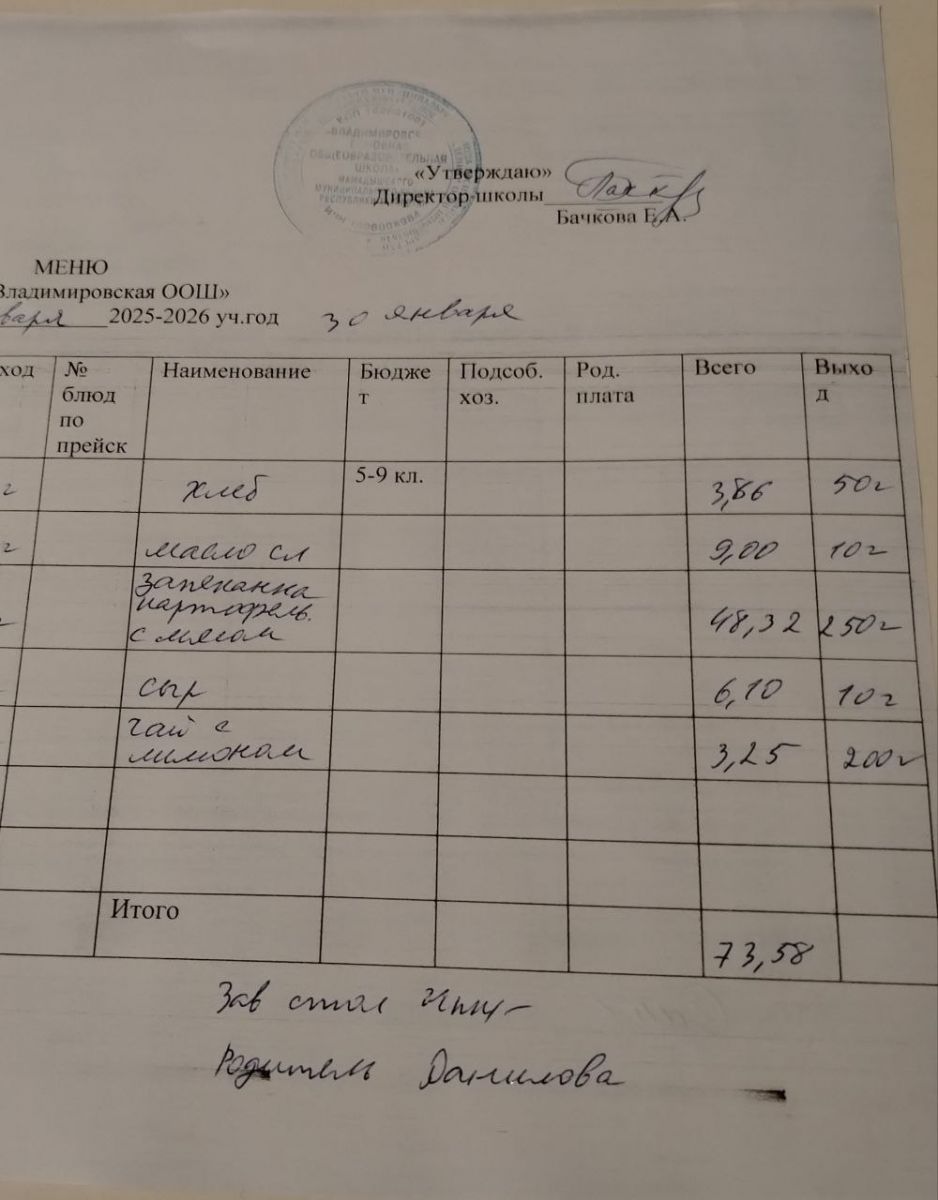 «ВЛАДИМИРОВСК
ОБЩЕОБРАЗОВАТЕЛЬНАЯ
ШКОЛА»
МАМАДЫШСКОГО
«Утверждаю»
Директор школы
Бачкова Е.А.
МЕНЮ
Владимировская ООШ»
варя 2025-2026 уч.год 30 января
ход № блюд по прейск Наименование Бюджет Подсоб. хоз. Род. плата Всего Выход
г хлеб 5-9 кл. 3,86 50г
г масло сл 9,00 10г
запеканка
картофель.
с мясом 48,32 250г
сыр 6,10 10г
чай с
лимоном 3,25 200г
Итого 73,58
Зав стол
Родитель Данилова